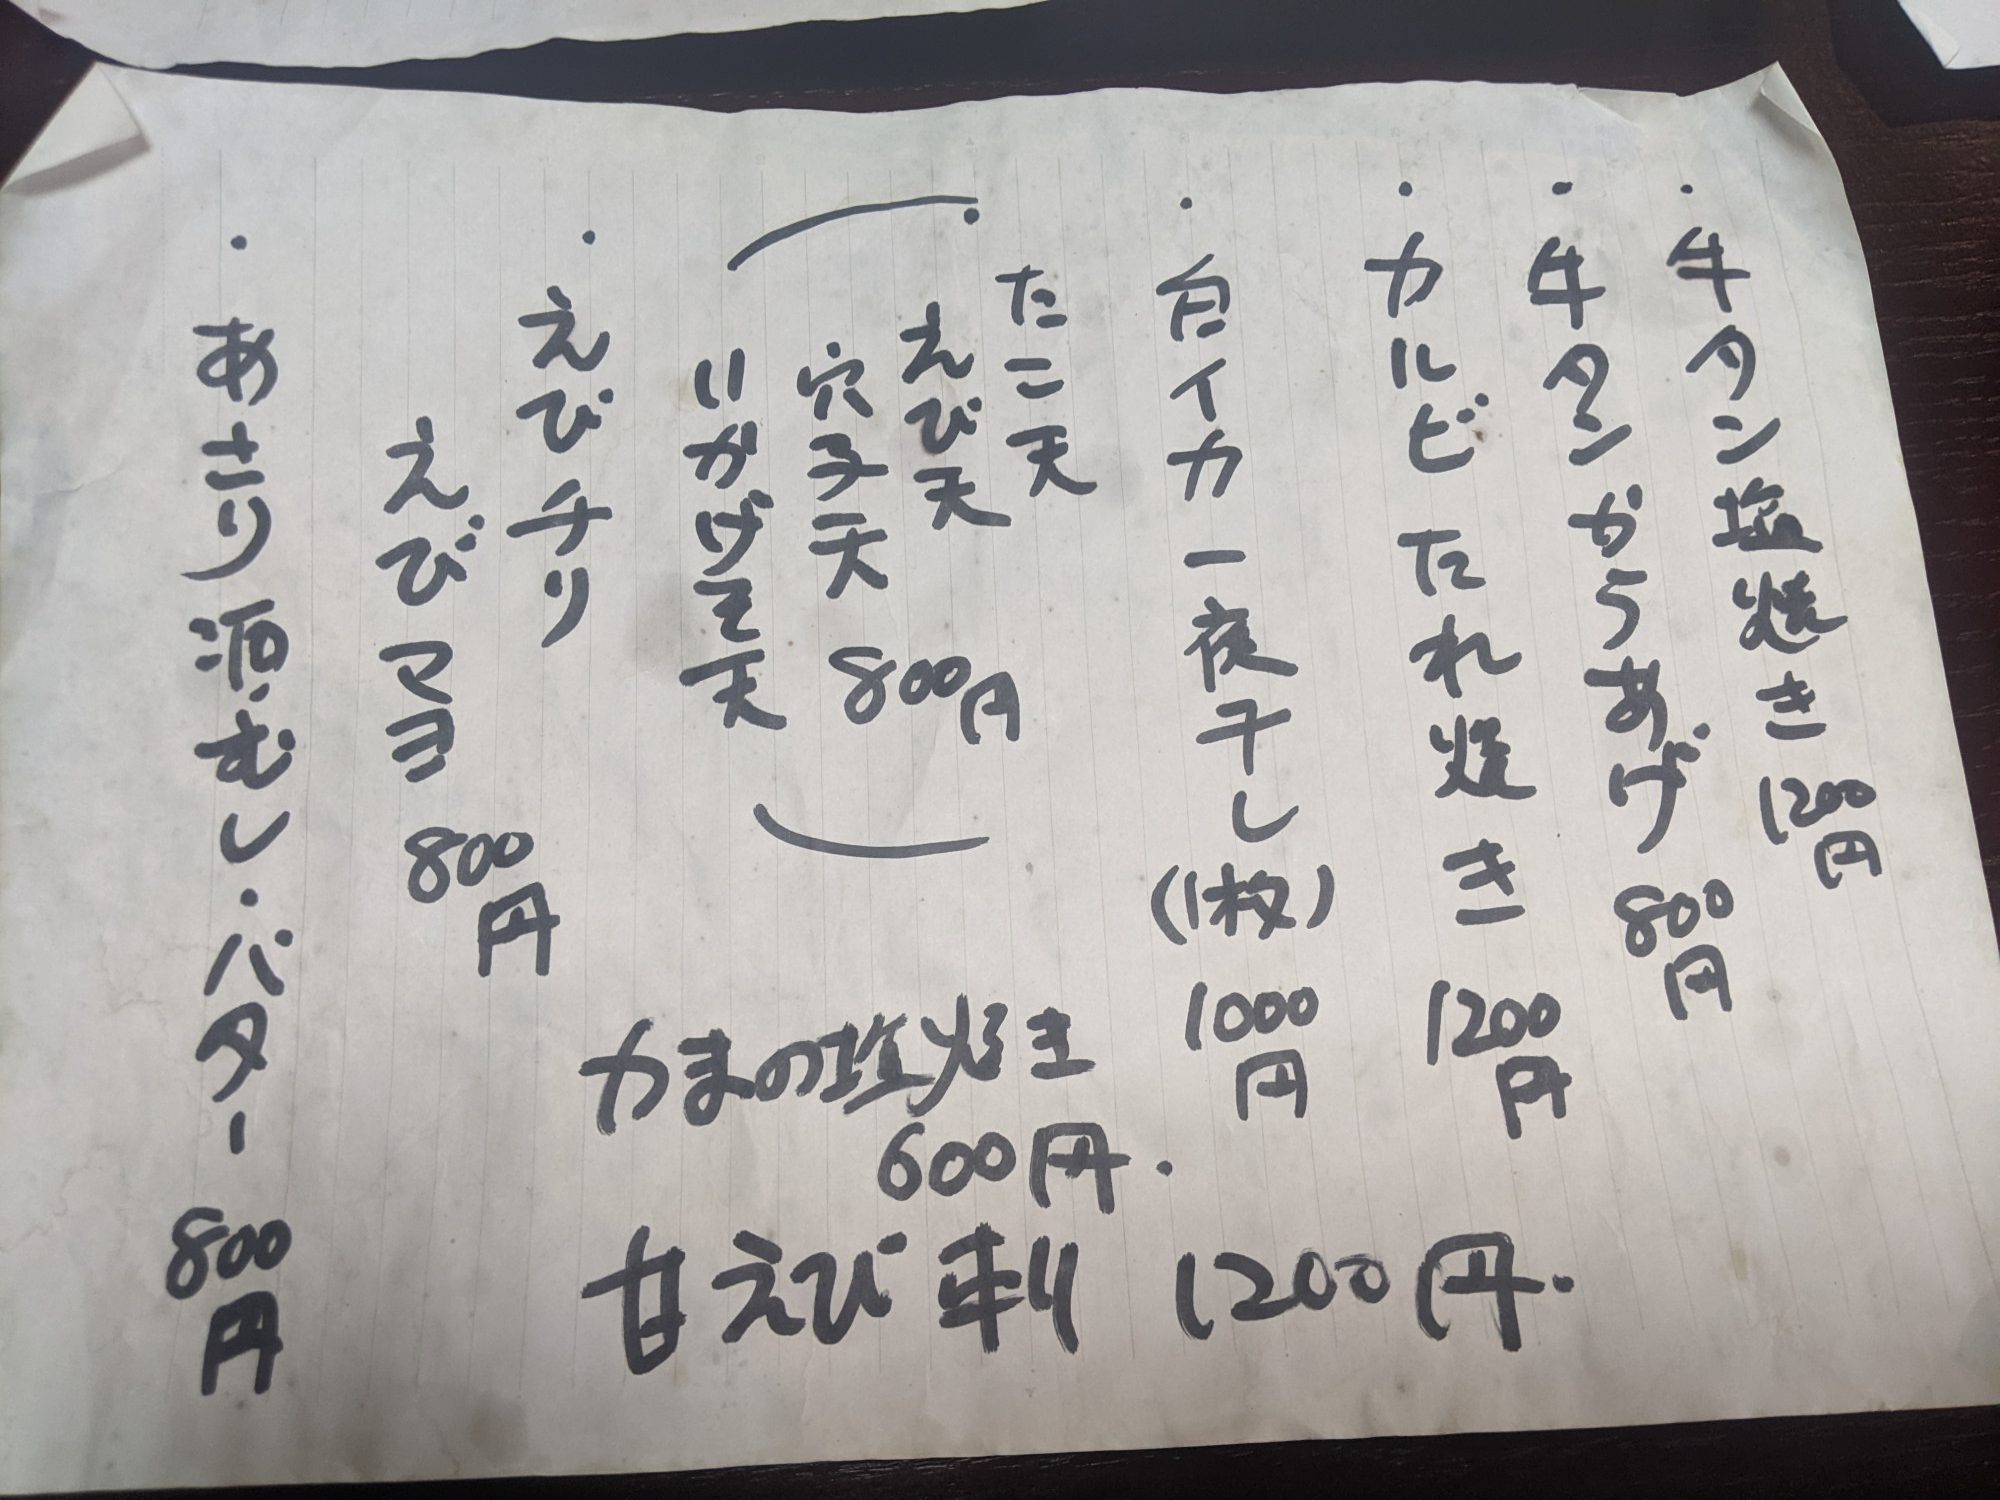 ・牛タン塩焼き 1200円
・牛タンからあげ 800円
・カルビたれ焼き 1200円
・白イカ一夜干し(1枚) 1000円
・たこ天
えび天
穴子天 800円
いかげそ天
・えびチリ
えびマヨ 800円
・あさり酒むし・バター 800円
かまの塩焼き
600円.
甘えび刺 1200円.